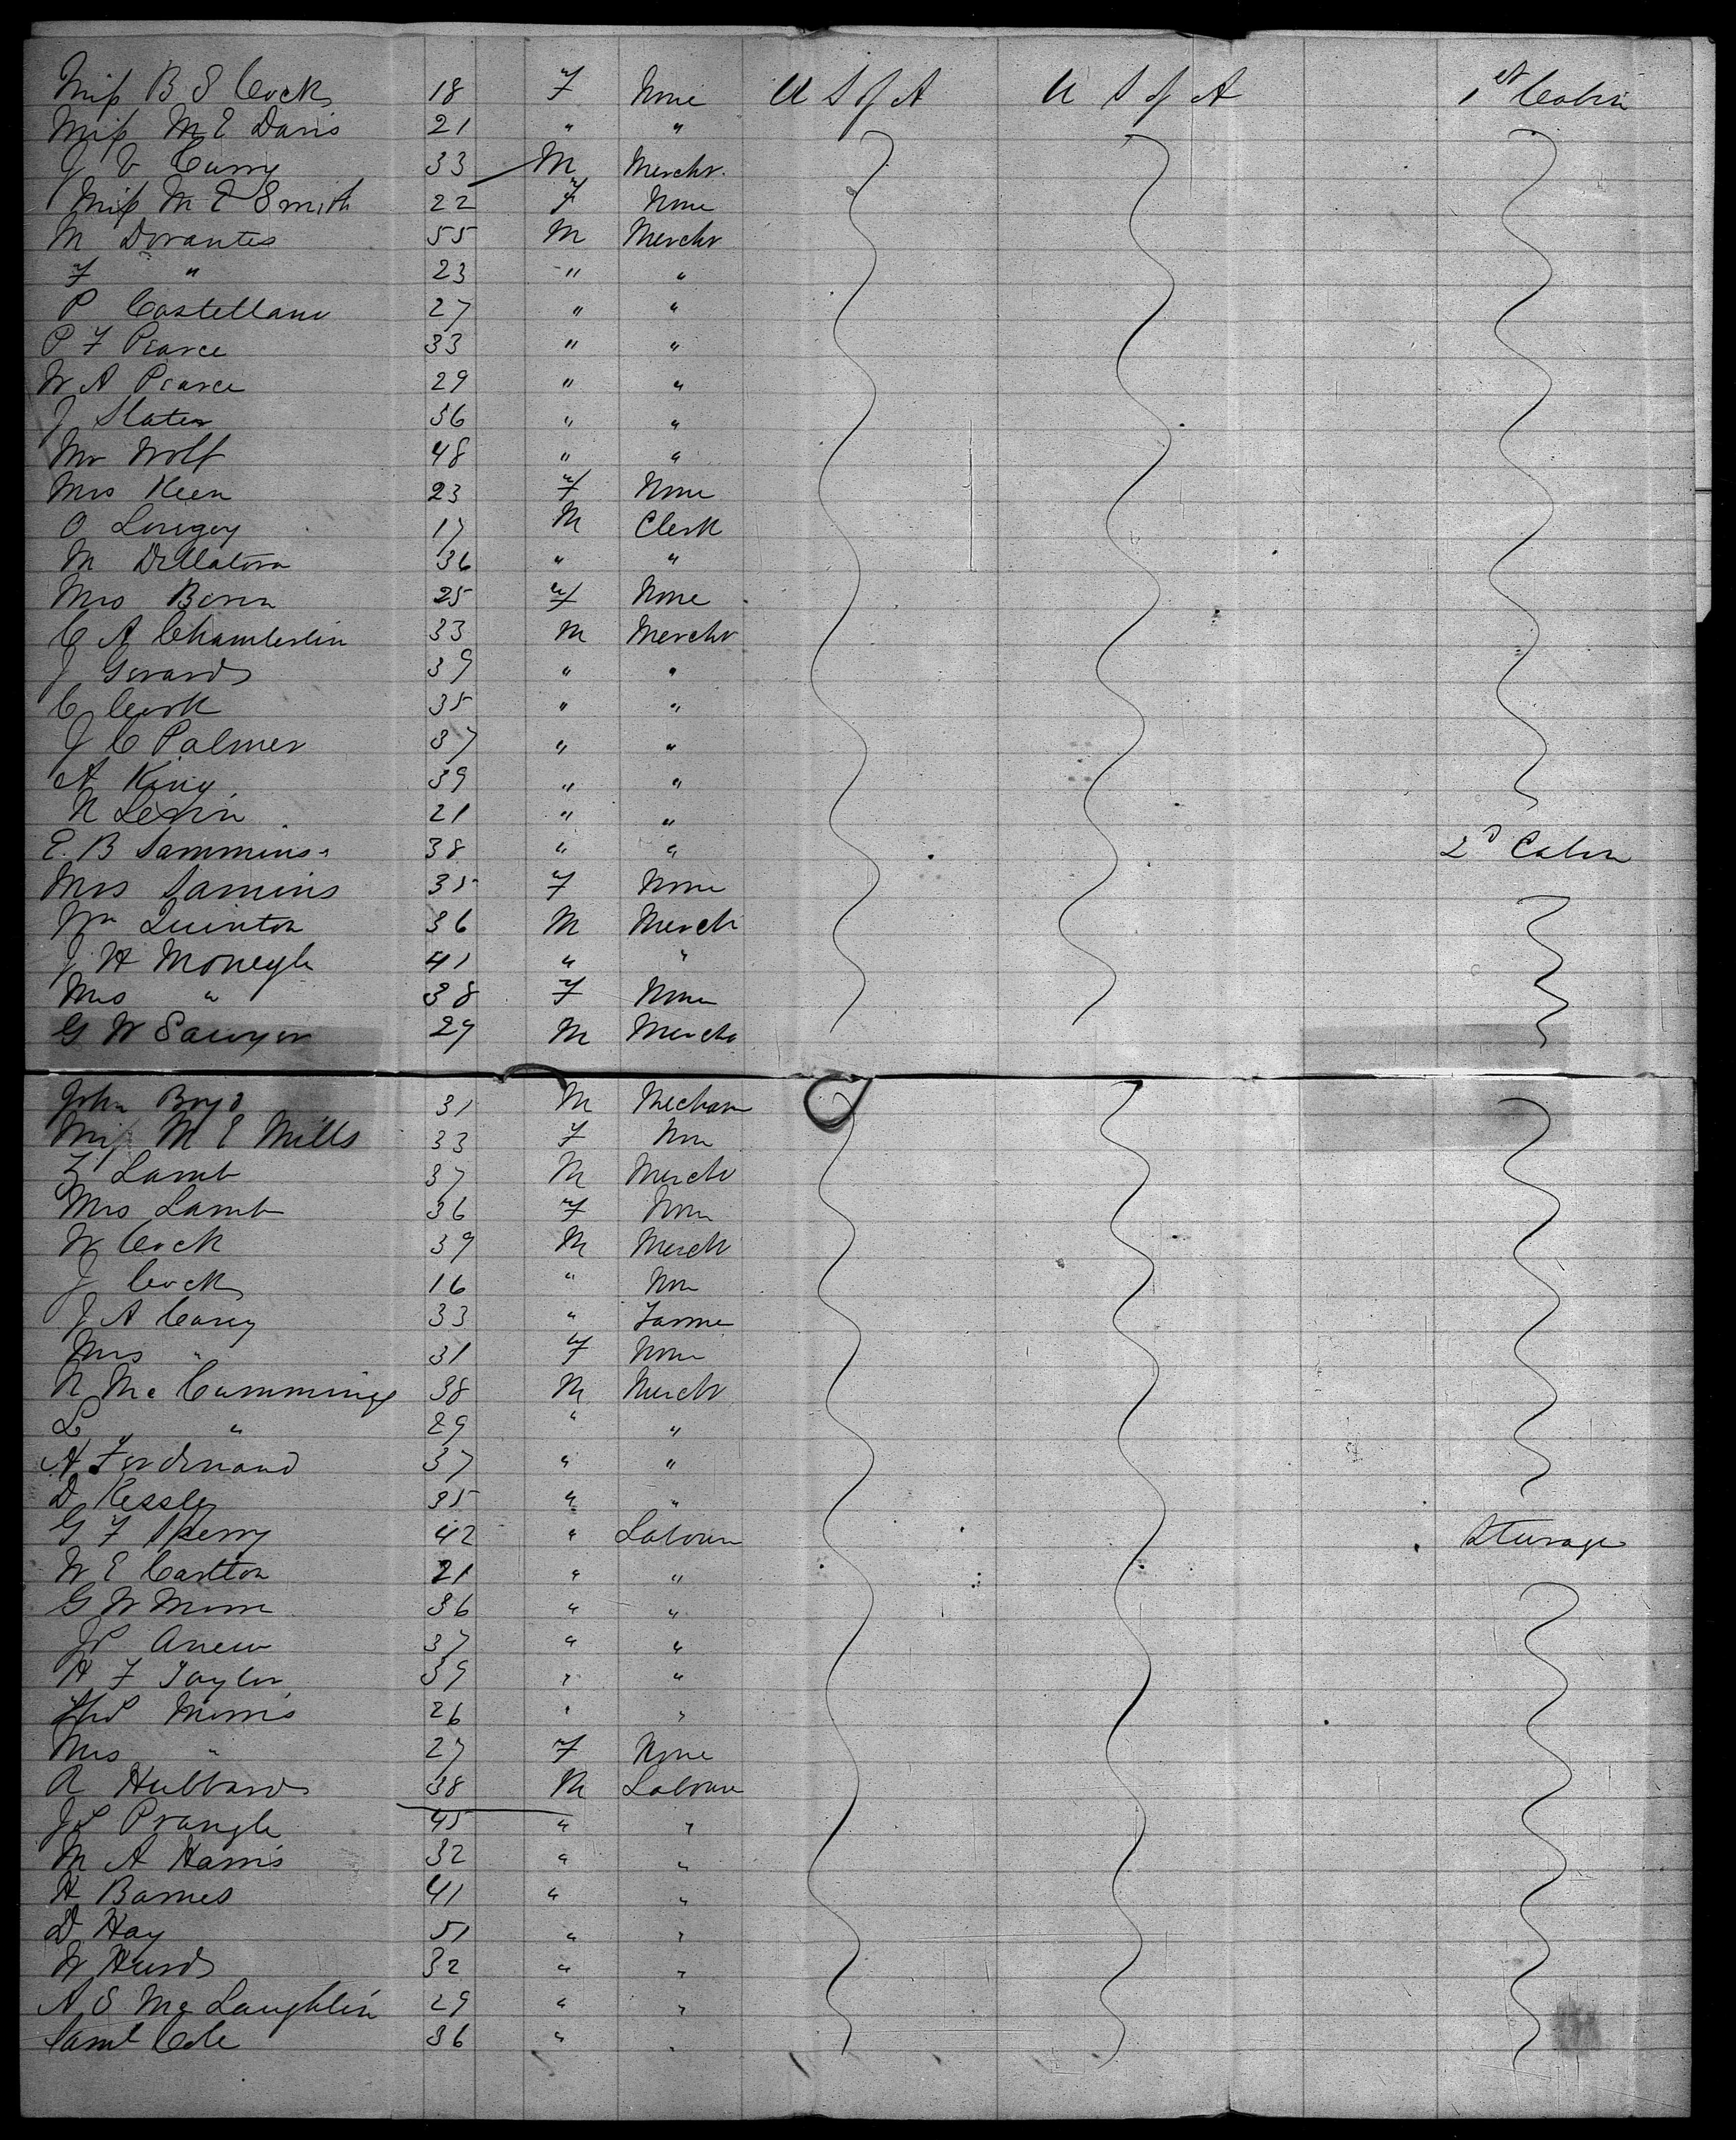 Miss B S Cock 18 F None U S of A U S of A 1st Cabin
Miss M E Davis 21 " "
J V Curry 33 M Mercht.
Miss M E Smith 22 F None
M Dorantes 55 M Mercht
F " 23 " "
P Castellano 27 " "
P F Pearce 33 " "
W A Pearce 29 " "
J Slater 36 " "
Mr Wolf 48 " "
Mrs Keen 23 F None
O 17 M Clerk
M 36 " "
Mrs 25 F None
C A Chamberlin 33 M Mercht
J Gerard 39 " "
C Cook 35 " "
J C Palmer 37 " "
A King 39 " "
N Levin 21 " "
E. B Sammins 38 " " 2d Cabin
Mrs Samins 35 F None
Wm Quinton 36 M Mercht
J H Monegle 41 " "
Mrs " 38 F None
G W Sawyer 29 M Mercht
John Boyd 31 M Mechan
Miss M E Mills 33 F Non
Z Lamb 37 M Mercht
Mrs Lamb 36 F Non
W Cock 39 M Mercht
J Cock 16 " Non
J A Carey 33 " Farme
Mrs " 31 F None
N Mc Cummings 38 M Mercht
L " " 29 " "
A Ferdinand 37 " "
D Kessley 35 " "
G F Sherry 42 " Laboure Sturage
W E Carlton 21 " "
G W 36 " "
JP Anew 37 " "
H F Taylor 39 " "
Morris 26 " "
Mrs " 27 F None
A Hubbard 38 M Laboure
JL Prangle 45 " "
M A Harris 32 " "
H Barnes 41 " "
D Hay 51 " "
W Hurd 32 " "
A S Mc Laughlin 29 " "
Saml Cole 36 " "